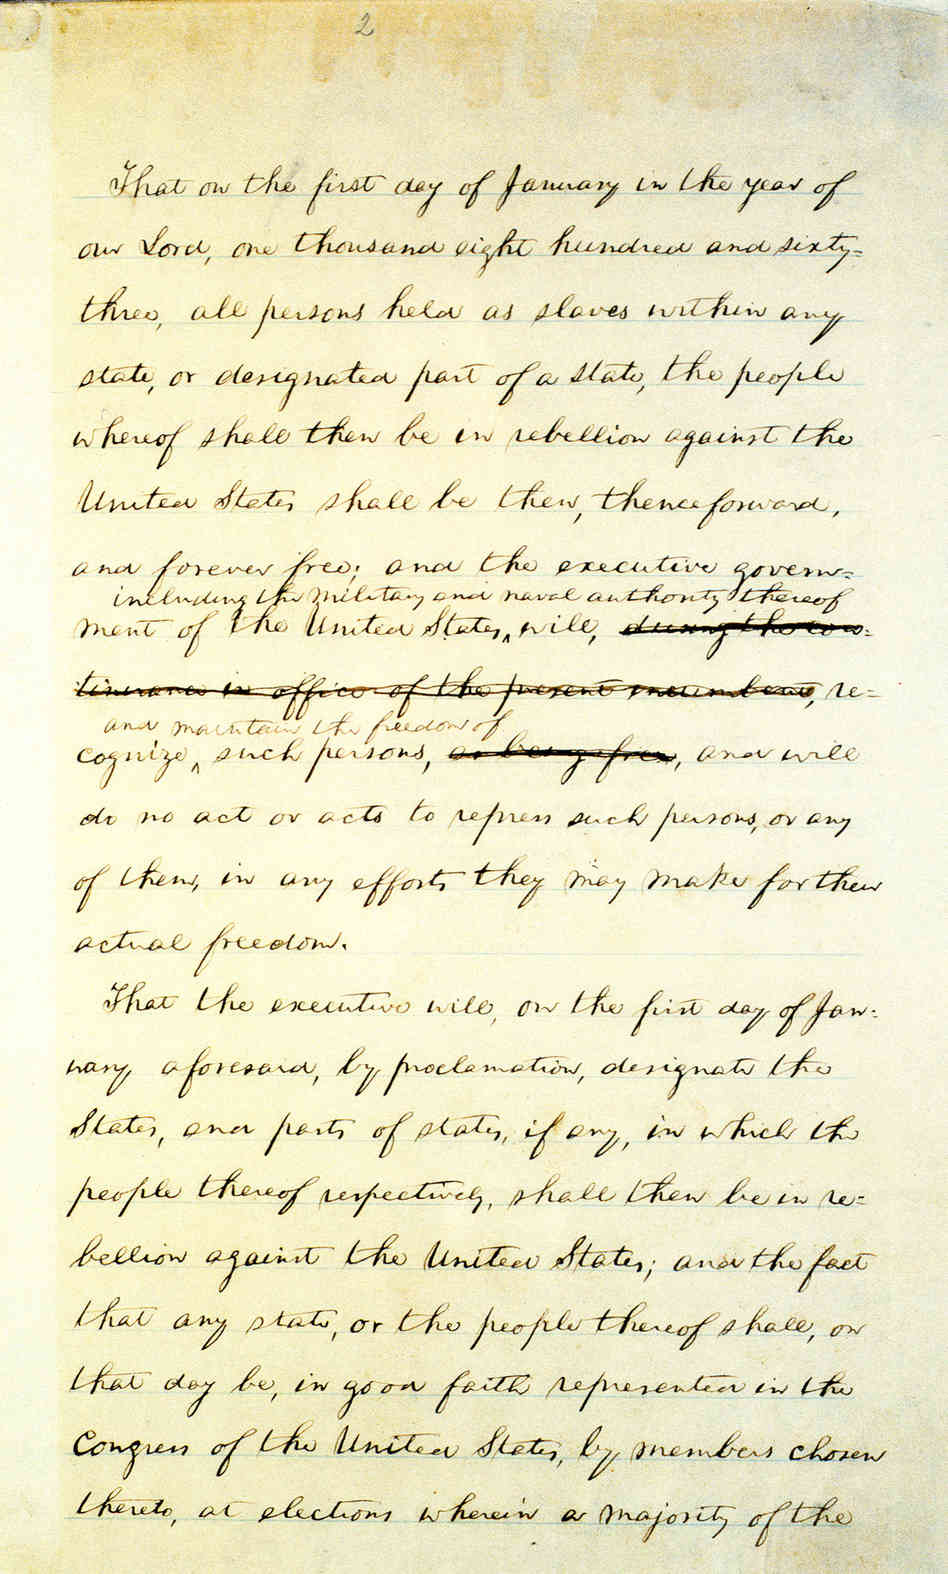 2
That on the first day of January in the year of
our Lord, one thousand eight hundred and sixty-
three, all persons held as slaves within any
state, or designated part of a state, the people
whereof shall then be in rebellion against the
United States shall be then, thenceforward,
and forever free; and the executive govern-
including the military and naval authority thereof
ment of the United States, will, during the con-
tinuance in office of the present incumbent, re-
and maintain the freedom of
cognize, such persons, as being free, and will
do no act or acts to repress such persons, or any
of them, in any efforts they may make for their
actual freedom.
That the executive will, on the first day of Jan-
uary aforesaid, by proclamation, designate the
States, and parts of states, if any, in which the
people thereof respectively, shall then be in re-
bellion against the United States; and the fact
that any state, or the people thereof shall, on
that day be, in good faith represented in the
Congress of the United States, by members chosen
thereto, at elections wherein a majority of the